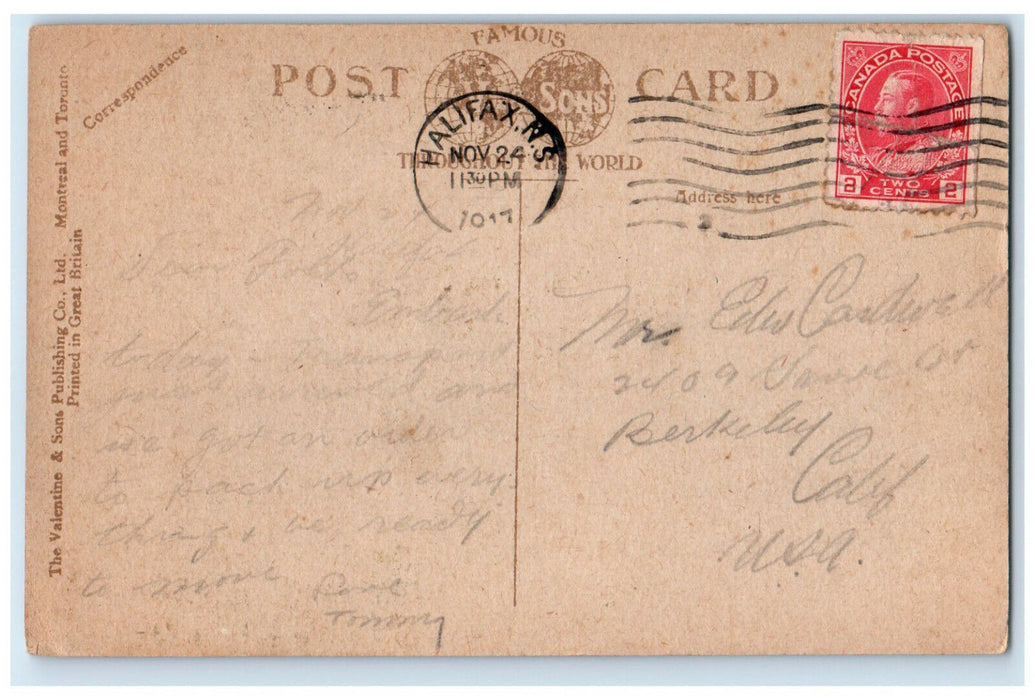 FAMOUS
POST CARD
SONS
THROUGHOUT THE WORLD
Correspondence
Address here
The Valentine & Sons Publishing Co., Ltd. Montreal and Toronto
Printed in Great Britain
HALIFAX, N.S
NOV 24
11 30 PM
CANADA POSTAGE
2 TWO CENTS 2
Dear Folks
today
we got an order
to pack up every
thing & be ready
to move Love
Tommy
Mrs Edw
2409
Berkeley
Calif
U.S.A.